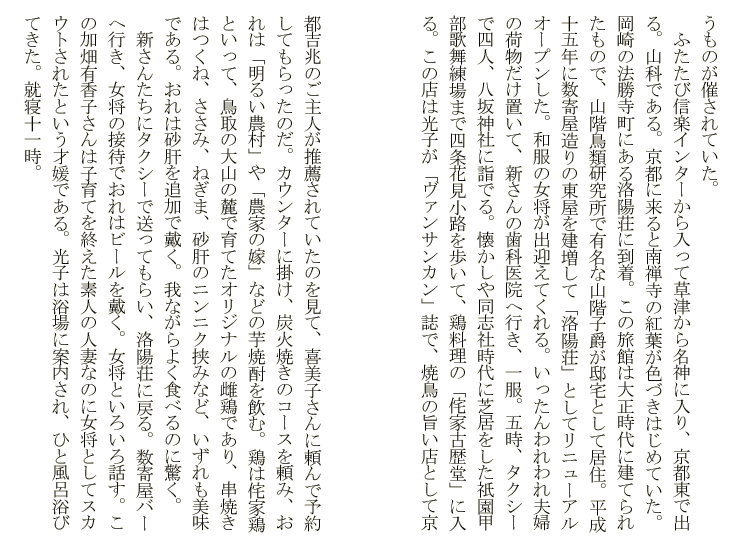 うものが催されていた。
　ふたたび信楽インターから入って草津から名神に入り、京都東で出
る。山科である。京都に来ると南禅寺の紅葉が色づきはじめていた。
岡崎の法勝寺町にある洛陽荘に到着。この旅館は大正時代に建てられ
たもので、山階鳥類研究所で有名な山階子爵が邸宅として居住。平成
十五年に数寄屋造りの東屋を建増して「洛陽荘」としてリニューアル
オープンした。和服の女将が出迎えてくれる。いったんわれわれ夫婦
の荷物だけ置いて、新さんの歯科医院へ行き、一服。五時、タクシー
で四人、八坂神社に詣でる。懐かしや同志社時代に芝居をした祇園甲
部歌舞練場まで四条花見小路を歩いて、鶏料理の「侘家古暦堂」に入
る。この店は光子が「ヴァンサンカン」誌で、焼鳥の旨い店として京
都吉兆のご主人が推薦されていたのを見て、喜美子さんに頼んで予約
してもらったのだ。カウンターに掛け、炭火焼きのコースを頼み、お
れは「明るい農村」や「農家の嫁」などの芋焼酎を飲む。鶏は侘家鶏
といって、鳥取の大山の麓で育てたオリジナルの雌鶏であり、串焼き
はつくね、ささみ、ねぎま、砂肝のニンニク挟みなど、いずれも美味
である。おれは砂肝を追加で戴く。我ながらよく食べるのに驚く。
　新さんたちにタクシーで送ってもらい、洛陽荘に戻る。数寄屋バー
へ行き、女将の接待でおれはビールを戴く。女将といろいろ話す。こ
の加畑有香子さんは子育てを終えた素人の人妻なのに女将としてスカ
ウトされたという才媛である。光子は浴場に案内され、ひと風呂浴び
てきた。就寝十一時。